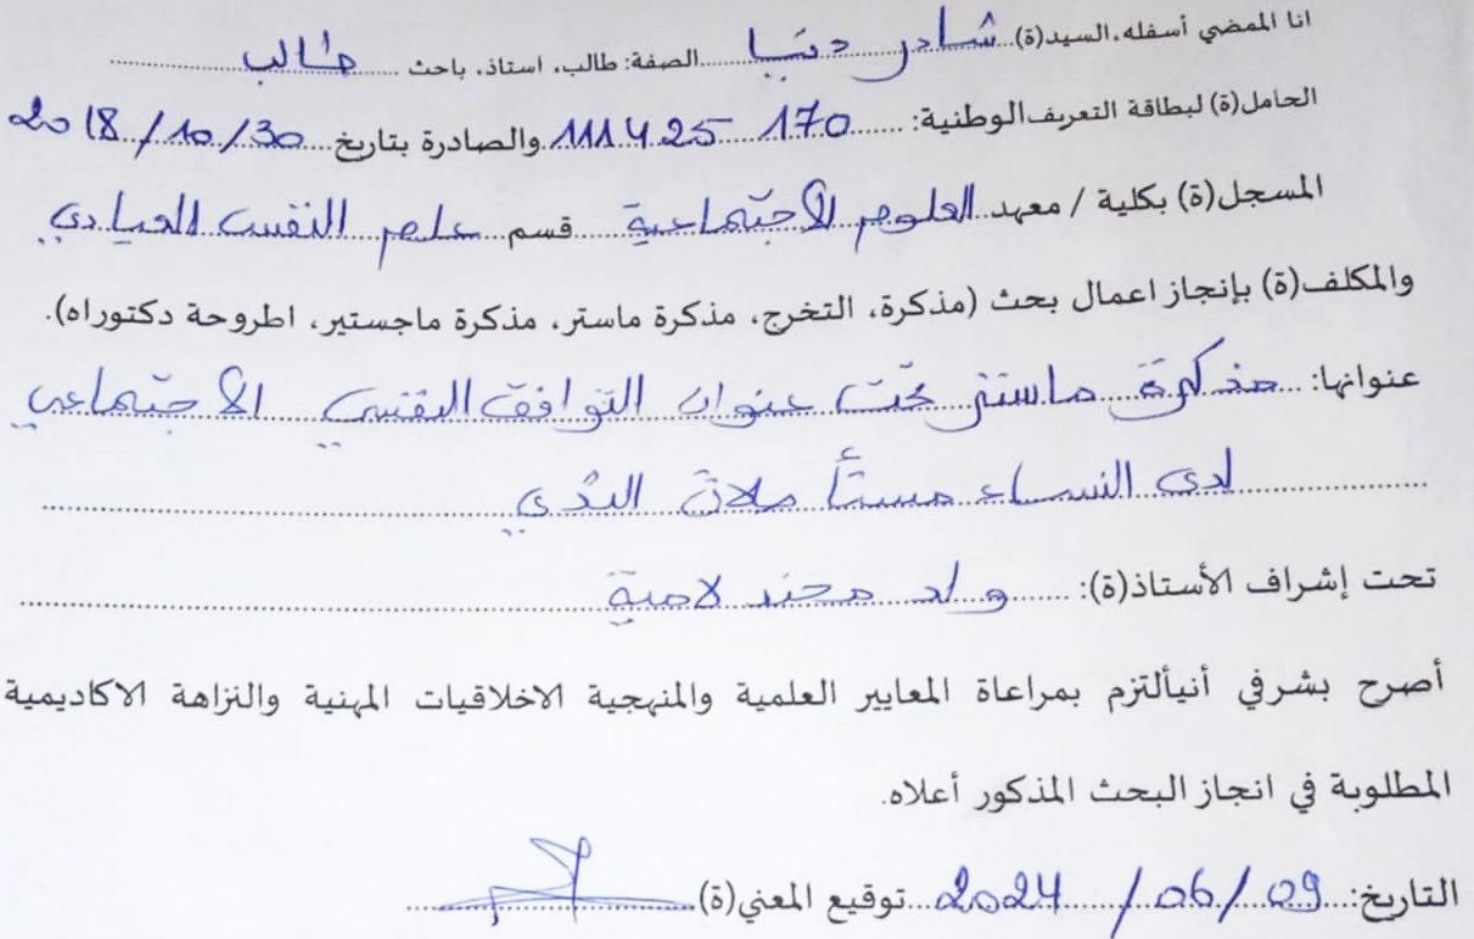 انا الممضي أسفله، السيد(ة) شادر دنيا الصفة: طالب، استاذ، باحث طالب
الحامل(ة) لبطاقة التعريف الوطنية: 111425170 والصادرة بتاريخ 2018/10/30
المسجل(ة) بكلية / معهد العلوم الاجتماعية قسم علم النفس العيادي
والمكلف(ة) بإنجاز اعمال بحث (مذكرة، التخرج، مذكرة ماستر، مذكرة ماجستير، اطروحة دكتوراه).
عنوانها: مذكرة ماستر تحت عنوان التوافق النفسي الاجتماعي
لدى النساء مستأصلات الثدي
تحت إشراف الأستاذ(ة): ولد محند لامية
أصرح بشرفي أنيألتزم بمراعاة المعايير العلمية والمنهجية الاخلاقيات المهنية والنزاهة الاكاديمية
المطلوبة في انجاز البحث المذكور أعلاه.
التاريخ: 2024/06/09 توقيع المعني(ة)